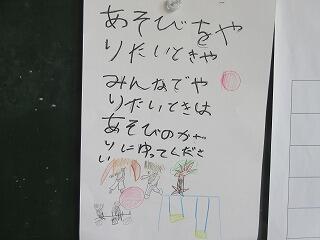 あそびをや
りたいときや
みんなでや
りたいときは
あそびのかか
りにゆってくださ
い